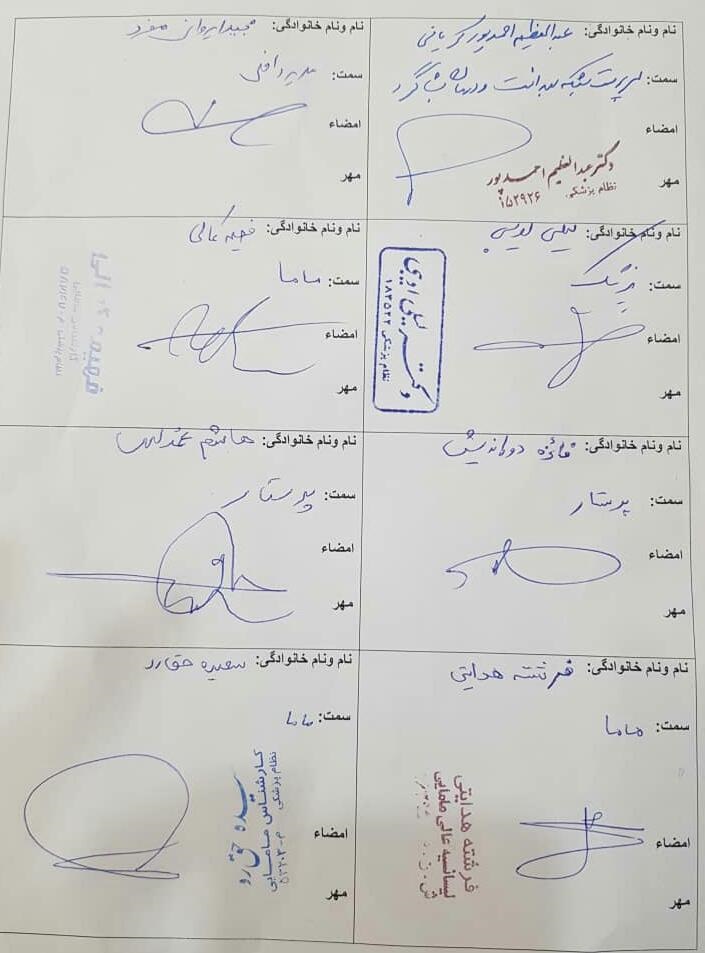 نام ونام خانوادگی: عبدالعظیم احمدپور
سمت: سرپرست شبکه بهداشت ودرمان بشاگرد
امضاء
مهر
دکتر عبدالعظیم احمدپور
نظام پزشکی: ۱۵۲۹۲۶
نام ونام خانوادگی: مجید ایروانی منفرد
سمت: مدیر داخلی
امضاء
مهر
نام ونام خانوادگی: لیلی اویسی
سمت: پزشک
امضاء
مهر
دکتر لیلی اویسی
نظام پزشکی ۱۸۳۵۲۲
نام ونام خانوادگی: فهیمه کمالی
سمت: ماما
امضاء
مهر
فهیمه
نام ونام خانوادگی: فائزه دوراندیش
سمت: پرستار
امضاء
مهر
نام ونام خانوادگی: هاشم
سمت: پرستار
امضاء
مهر
نام ونام خانوادگی: فرشته هدایتی
سمت: ماما
امضاء
مهر
فرشته هدایتی
لیسانسیه عالی مامایی
نام ونام خانوادگی: سعیده حق رو
سمت: ماما
امضاء
مهر
سیده حق رو
کارشناس مامایی
نظام پزشکی